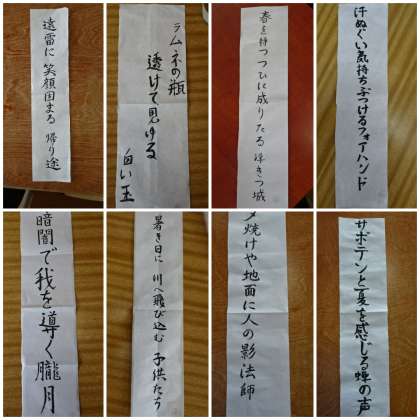 遠雷に 笑顔固まる 帰り途
ラムネの瓶
透けて見ゆる
白い玉
春を待つつひに成りたる 浮きつ城
汗ぬぐい気持ちぶつけるフォアハンド
暗闇で我を導く朧月
暑き日に 川へ飛び込む 子供たち
夕焼けや地面に人の影法師
サボテンと夏を感じる蝉の声